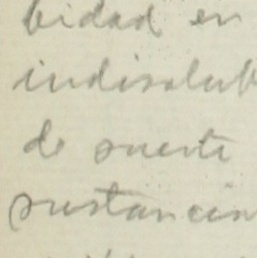 bidad en
indisolub
de suerte
sustancia